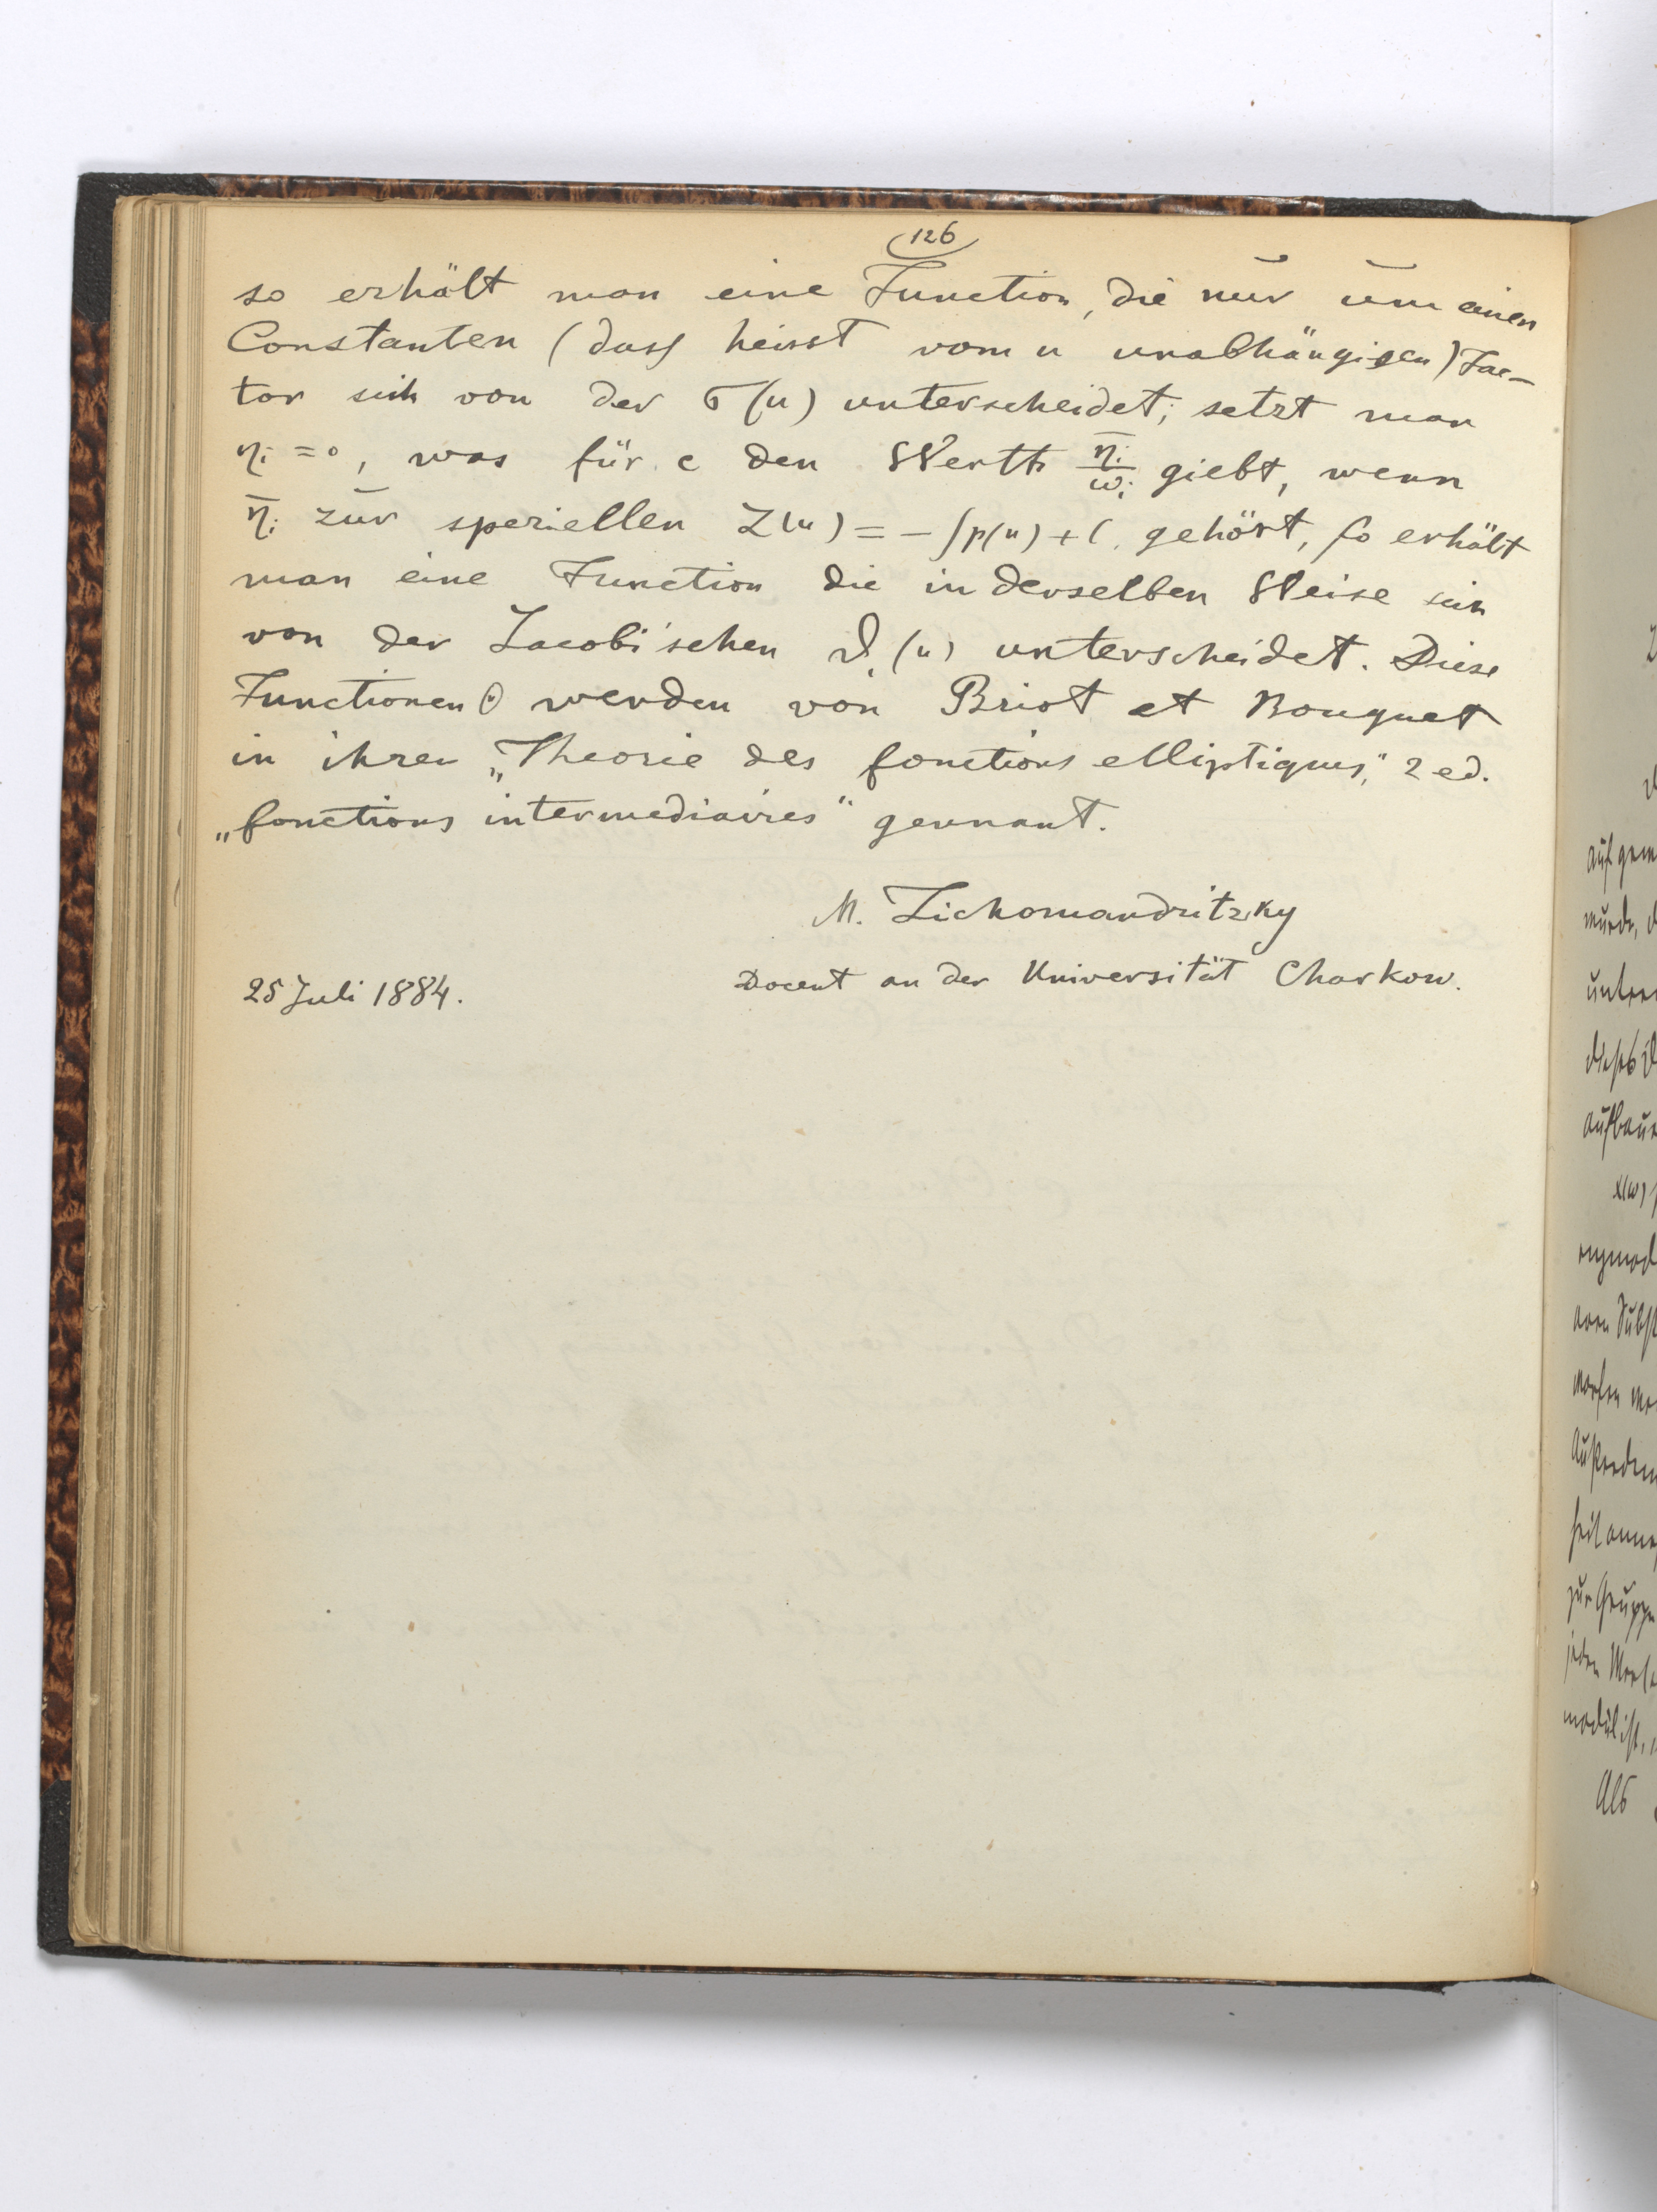 126
so erhält man eine Function, die nur um einen
Constanten (dass heisst vom u unabhängigen) Fac-
tor sich von der σ(u) unterscheidet; setzt man
ηᵢ = 0, was für c den Werth η̄ᵢ/ωᵢ giebt, wenn
η̄ᵢ zur speziellen Z(u) = -∫p(u) + C, gehört, so erhält
man eine Function die in derselben Weise sich
von der Jacobi'schen ϑ₁(u) unterscheidet. Diese
Functionen werden von Briot et Bouquet
in ihrer „Theorie des fonctions elliptiques," 2 ed.
„fonctions intermediaires" gennant.
M. Tichomandritzky
25 Juli 1884.
Docent an der Universität Charkow.
aufgem
wurde, d
unter
dieses
Aufbau
x(ω)
jeden
modul ist,
Als